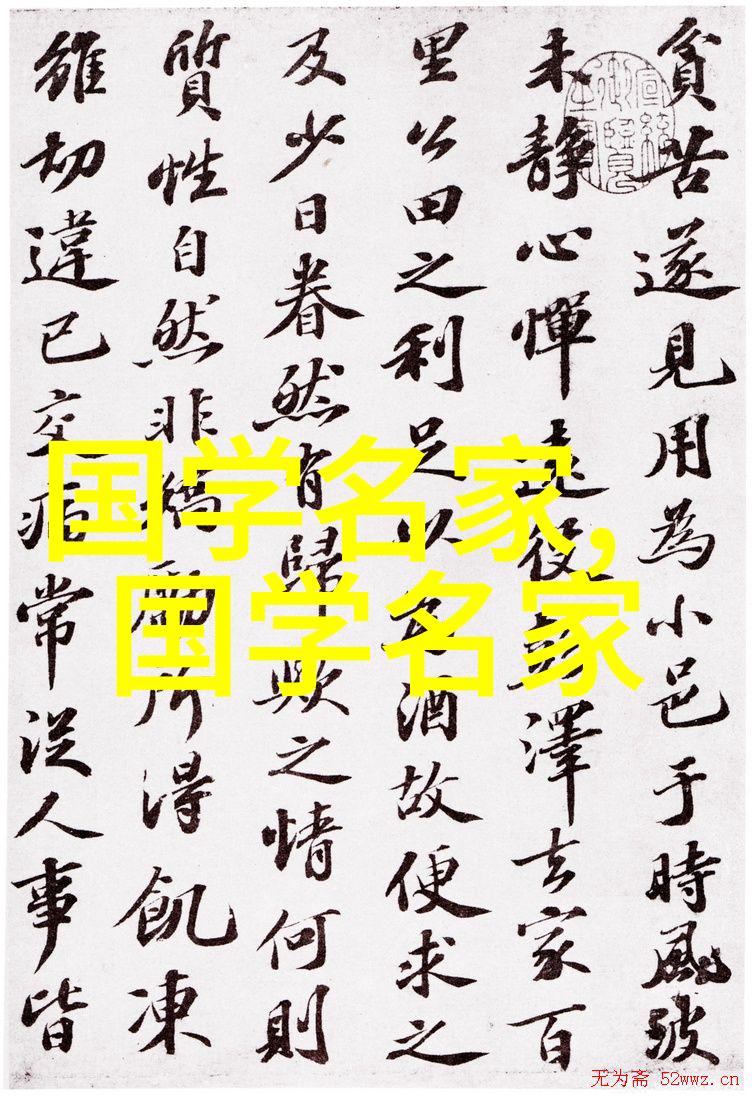 貧苦遂見用為小邑于時風波
未靜心憚遠役彭澤去家百
里公田之利足以為酒故便求之
及少日眷然有歸歟之情何則
質性自然非矯厲所得飢凍
雖切違已交病常從人事皆
国学名家,
国学名家
无为斋 52wwz.cn